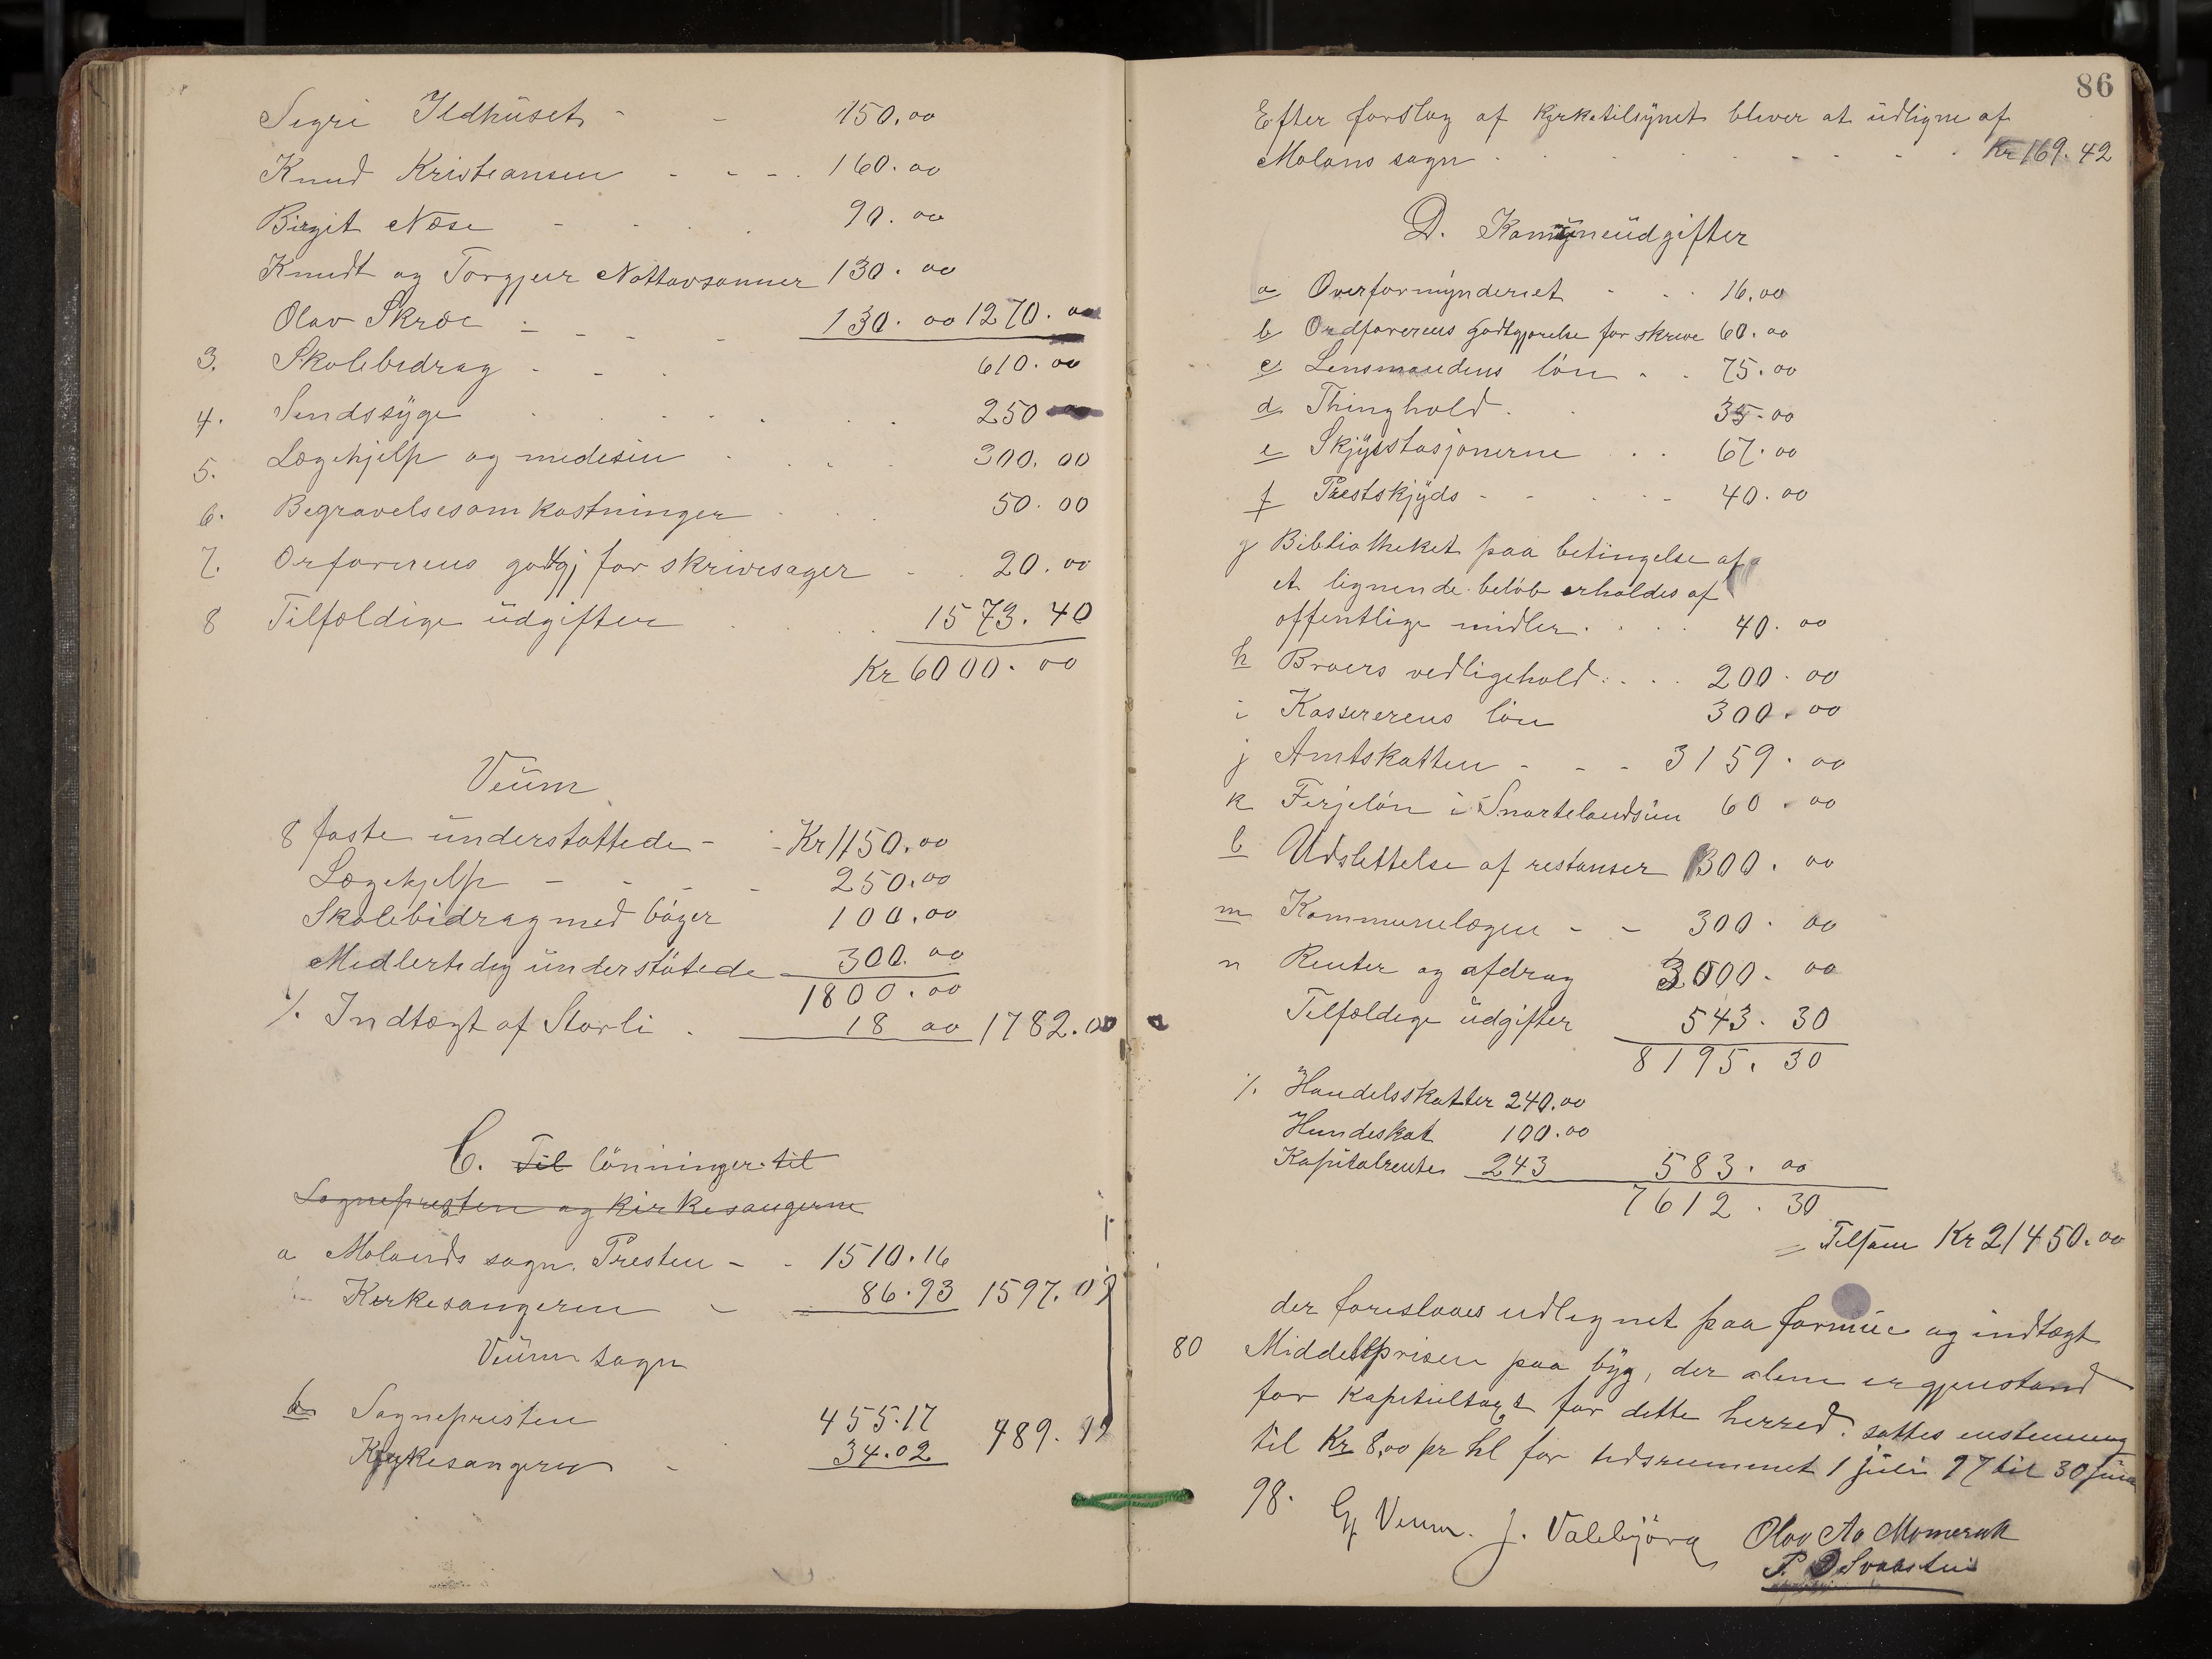 Sigri Ildhüset - - 150.00
Knud Kristiansen - - - 160.00
Birgit Næse - - 90.00
Knudt og Torgjer Nottovsønner 130.00
Olav Skræe - - - 130.00 1270.00
3. Skolebidrag - - 610.00
4. Sindssÿge 250
5. Lægehjelp og medesin 300.00
6. Begravelsesomkostninger 50.00
7. Orførerens godtgj for skrivesager - 20.00
8 Tilfældige üdgifter 1573.40
Kr 6000.00
Veüm
8 faste ünderstøttede - - Kr 1150.00
Lægehjelp - - - - 250.00
Skolebidrag med bøger 100.00
Medlertidig ünderstøtede 300.00
1800.00
./. Indtægt af Storli 18 00 1782.00
C. Til lönninger til
Sognepresten og kirkesangerne
a Molands sogn. Presten - - 1510.16
Kirkesangeren - 86.93 1597.09
Veüm sogn
b Sognepresten 455.17
Kirkesangeren - 34.02 489.19
86
Efter forslag af Kirketilsÿnet bliver at üdligne af
Molans sogn Kr 169.42
D. Komüneüdgifter
a Overformÿnderiet - 16.00
b Ordførerens godtgjørelse for skrive 60.00
c Lensmandens lön - 75.00
d Thinghold 35.00
e Skjÿsstasjonerne 67.00
f Prestskjÿds - - - 40.00
g Bibliotheket paa betingelse af
et lignende belöb erholdes af
offentlige midler 40.00
h Broers vedligehold 200.00
i Kassererens lön 300.00
j Amtskatten - - - 3159.00
k Ferjelön i Snartelandsün 60.00
l Udslettelse af restanser 300.00
m Kommunelægen - - 300.00
n Renter og afdrag 3000.00
Tilfældige üdgifter 543.30
8195.30
./. Handelsskatter 240.00
Hundeskat 100.00
Kapitalrenter 243 583.00
7612.30
= Tilsam Kr 21450.00
der foreslaaes udlignet paa formüe og indtægt
80 Middelsprisen paa bÿg, der alene er gjenstand
for kapitultagt for dette herred. sattes enstemmig
til Kr 8,00 pr hl for tidsrummet 1 jüli 97 til 30 jüni
98.
G Veum. J. Valebjörg Olav Aa Momerak